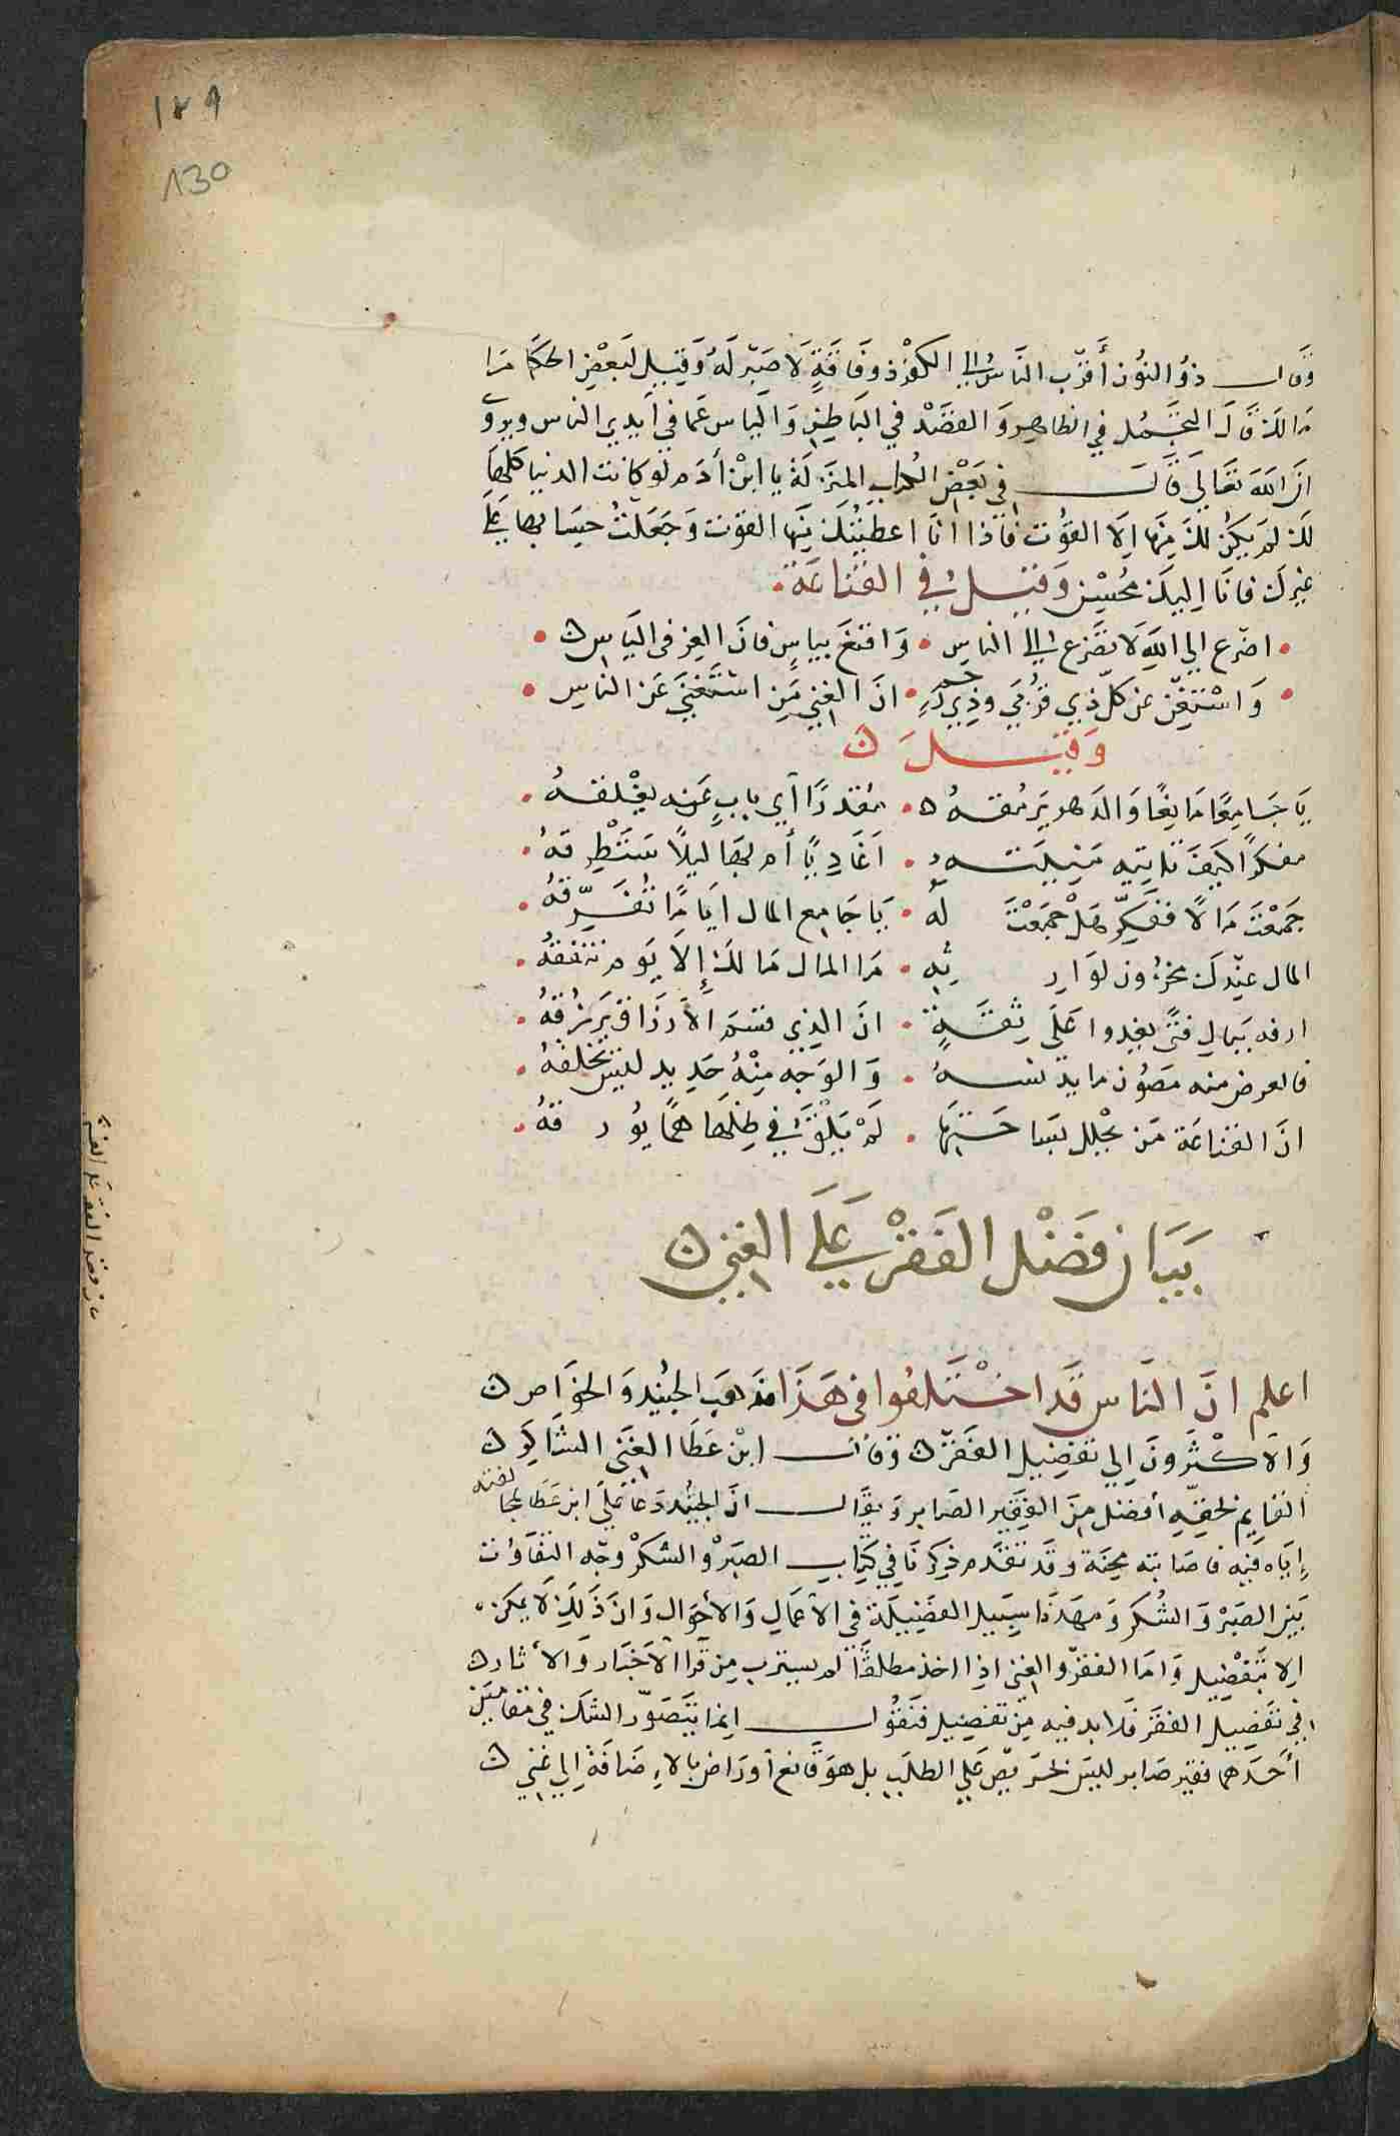 ١٢٩
130
وقال ذو النون أقرب الناس الي الكفر ذو فاقة لا صبر له وقيل لبعض الحكما ما
مالك قال التجمل في الظاهر والقصد في الباطن والياس عما في ايدي الناس ويروي
ان الله تعالي قال في بعض الكتب المنزلة يا ابن أدم لو كانت الدنيا كلها
لك لم يكن لك منها الا القوت فاذا انا اعطيتك منها القوت وجعلت حسابها علي
غيرك فانا اليك محسن وقيل في القناعة
اضرع الي الله لا تضرع الي الناس • واقنع بياس فان العز في الياس
واستغن عن كل ذي قربي وذي رحم • ان الغني من استغني عن الناس
وقيل
يا جامعا مانعا والدهر يرمقه • مقدرا أي باب عنه يغلقه
مفكرا كيف تاتيه منيته • اغاديا أم بها ليلا ستطرقه
جمعت مالا ففكر هل جمعت له • يا جامع المال اياما تفرقه
المال عندك مخزون لوارثه • ما المال مالك إلا يوم تنفقه
ارفه ببال فتي يغدوا علي ثقة • ان الذي قسم الأرزاق يرزقه
فالعرض منه مصون ما يدنسه • والوجه منه جديد ليس يخلقه
ان القناعة من يحلل بساحتها • لم يلق في ظلها هما يؤرقه
بيان فضل الفقر علي الغني
اعلم ان الناس قد اختلفوا في هذا فذهب الجنيد والخواص
والأكثرون الي تفضيل الفقر وقال ابن عطا الغني الشاكر
القايم بحقه أفضل من الفقير الصابر ويقال ان الجنيد دعا علي ابن عطا لمخالفته
إياه فيه فاصابته محنة وقد تقدم ذكرنا في كتاب الصبر والشكر وجه التفاوت
بين الصبر والشكر ومهدنا سبيل الفضيلة في الأعمال والأحوال وان ذلك لا يمكن
الا بتفضيل واما الفقر والغني اذا اخذ مطلقا لم يسترب من قرا الأخبار والأثار
في تفضيل الفقر فلا بد فيه من تفصيل فنقول انما يتصور الشك في مقامين
أحدهما فقير صابر ليس بحريص علي الطلب بل هو قانع أو راض بالإضافة الي غني
بيان فضل الفقر علي الغني